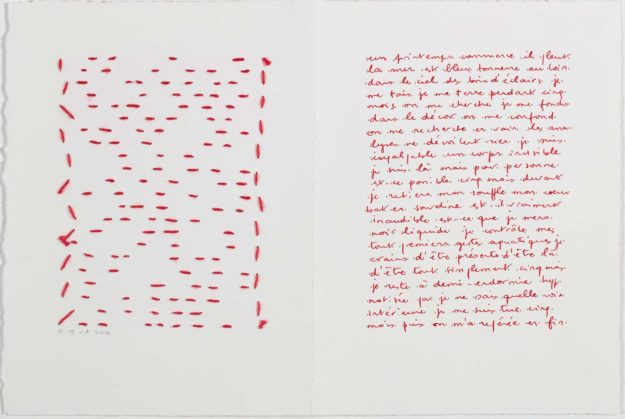 15-19 oct 2006
un printemps commence il pleut
la mer est bleue tonnerre au loin
dans le ciel des bois d'éclairs je
me tais je me terre pendant cinq
mois on me cherche je me fonds
dans le décor on me confond
on me recherche en vain les ana
lyses ne dévoilent rien je suis
impalpable un corps invisible
je suis là mais pour personne
est-ce possible cinq mois durant
je retiens mon souffle mon cœur
bat en sourdine est-il vraiment
inaudible est-ce que je mens
noir liquide je contrôle mes
tout premiers gestes aquatiques je
crains d'être présente d'être là
d'être tout simplement cinq mois
je reste à demi-endormie hyp
notisée par je ne sais quelle voix
intérieure je me suis tue cinq
mois puis on m'a repérée en fin